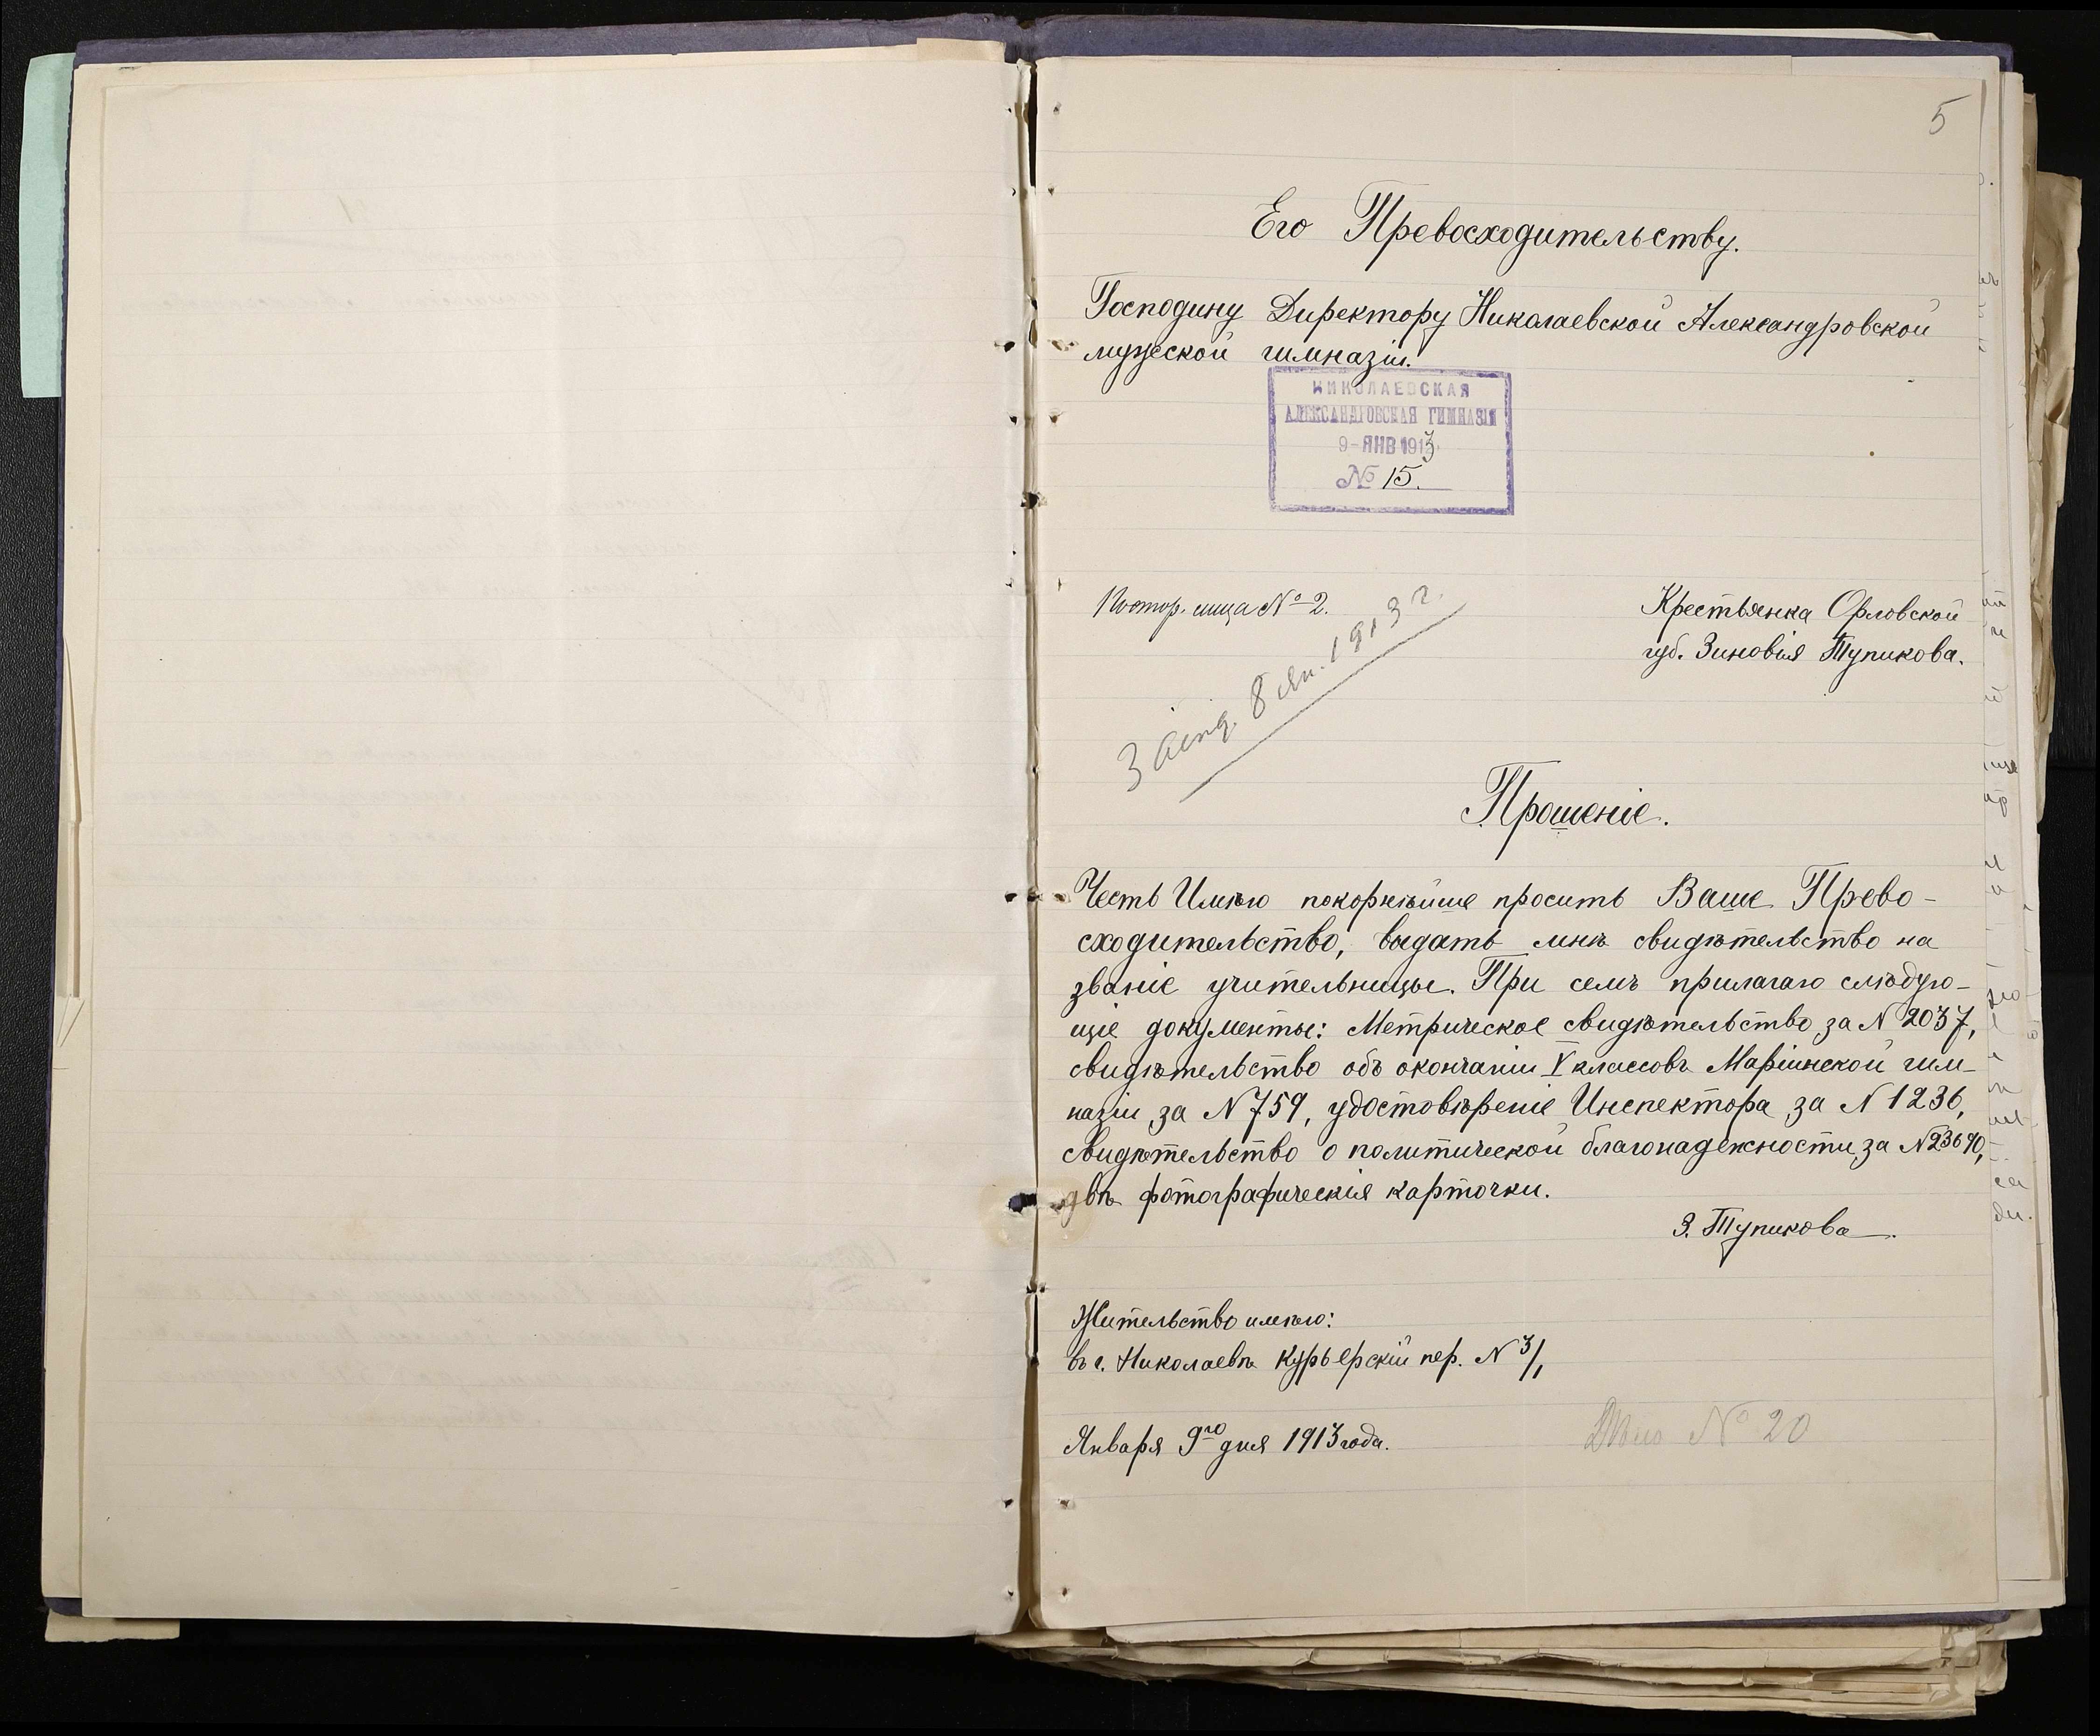 5
Его Превосходительству.
Господину Директору Николаевской Александровской
мужской гимназіи.
НИКОЛАЕВСКАЯ
АЛЕКСАНДРОВСКАЯ ГИМНАЗІЯ
9-ЯНВ 1913
№ 15.
Постор. лица № 2.
8 Ян. 1913 г.
Крестьянка Орловской
губ. Зиновія Тупикова.
Прошеніе.
Честь Имѣю покорнѣйше просить Ваше Прево-
сходительство, выдать мнѣ свидѣтельство на
званіе учительницы. При семъ прилагаю слѣдую-
щіе документы: Метрическое свидѣтельство за N 2037,
свидѣтельство объ окончаніи V классовъ Маріинской гим-
назіи за N 759, удостовѣреніе Инспектора за N 1236,
свидѣтельство о политической благонадежности за N 23690,
двѣ фотографическія карточки.
З. Тупикова.
Жительство имѣю:
въ г. Николаевѣ Курьерскій пер. N 3/1
Января 9го дня 1913 года.
Дѣло № 20